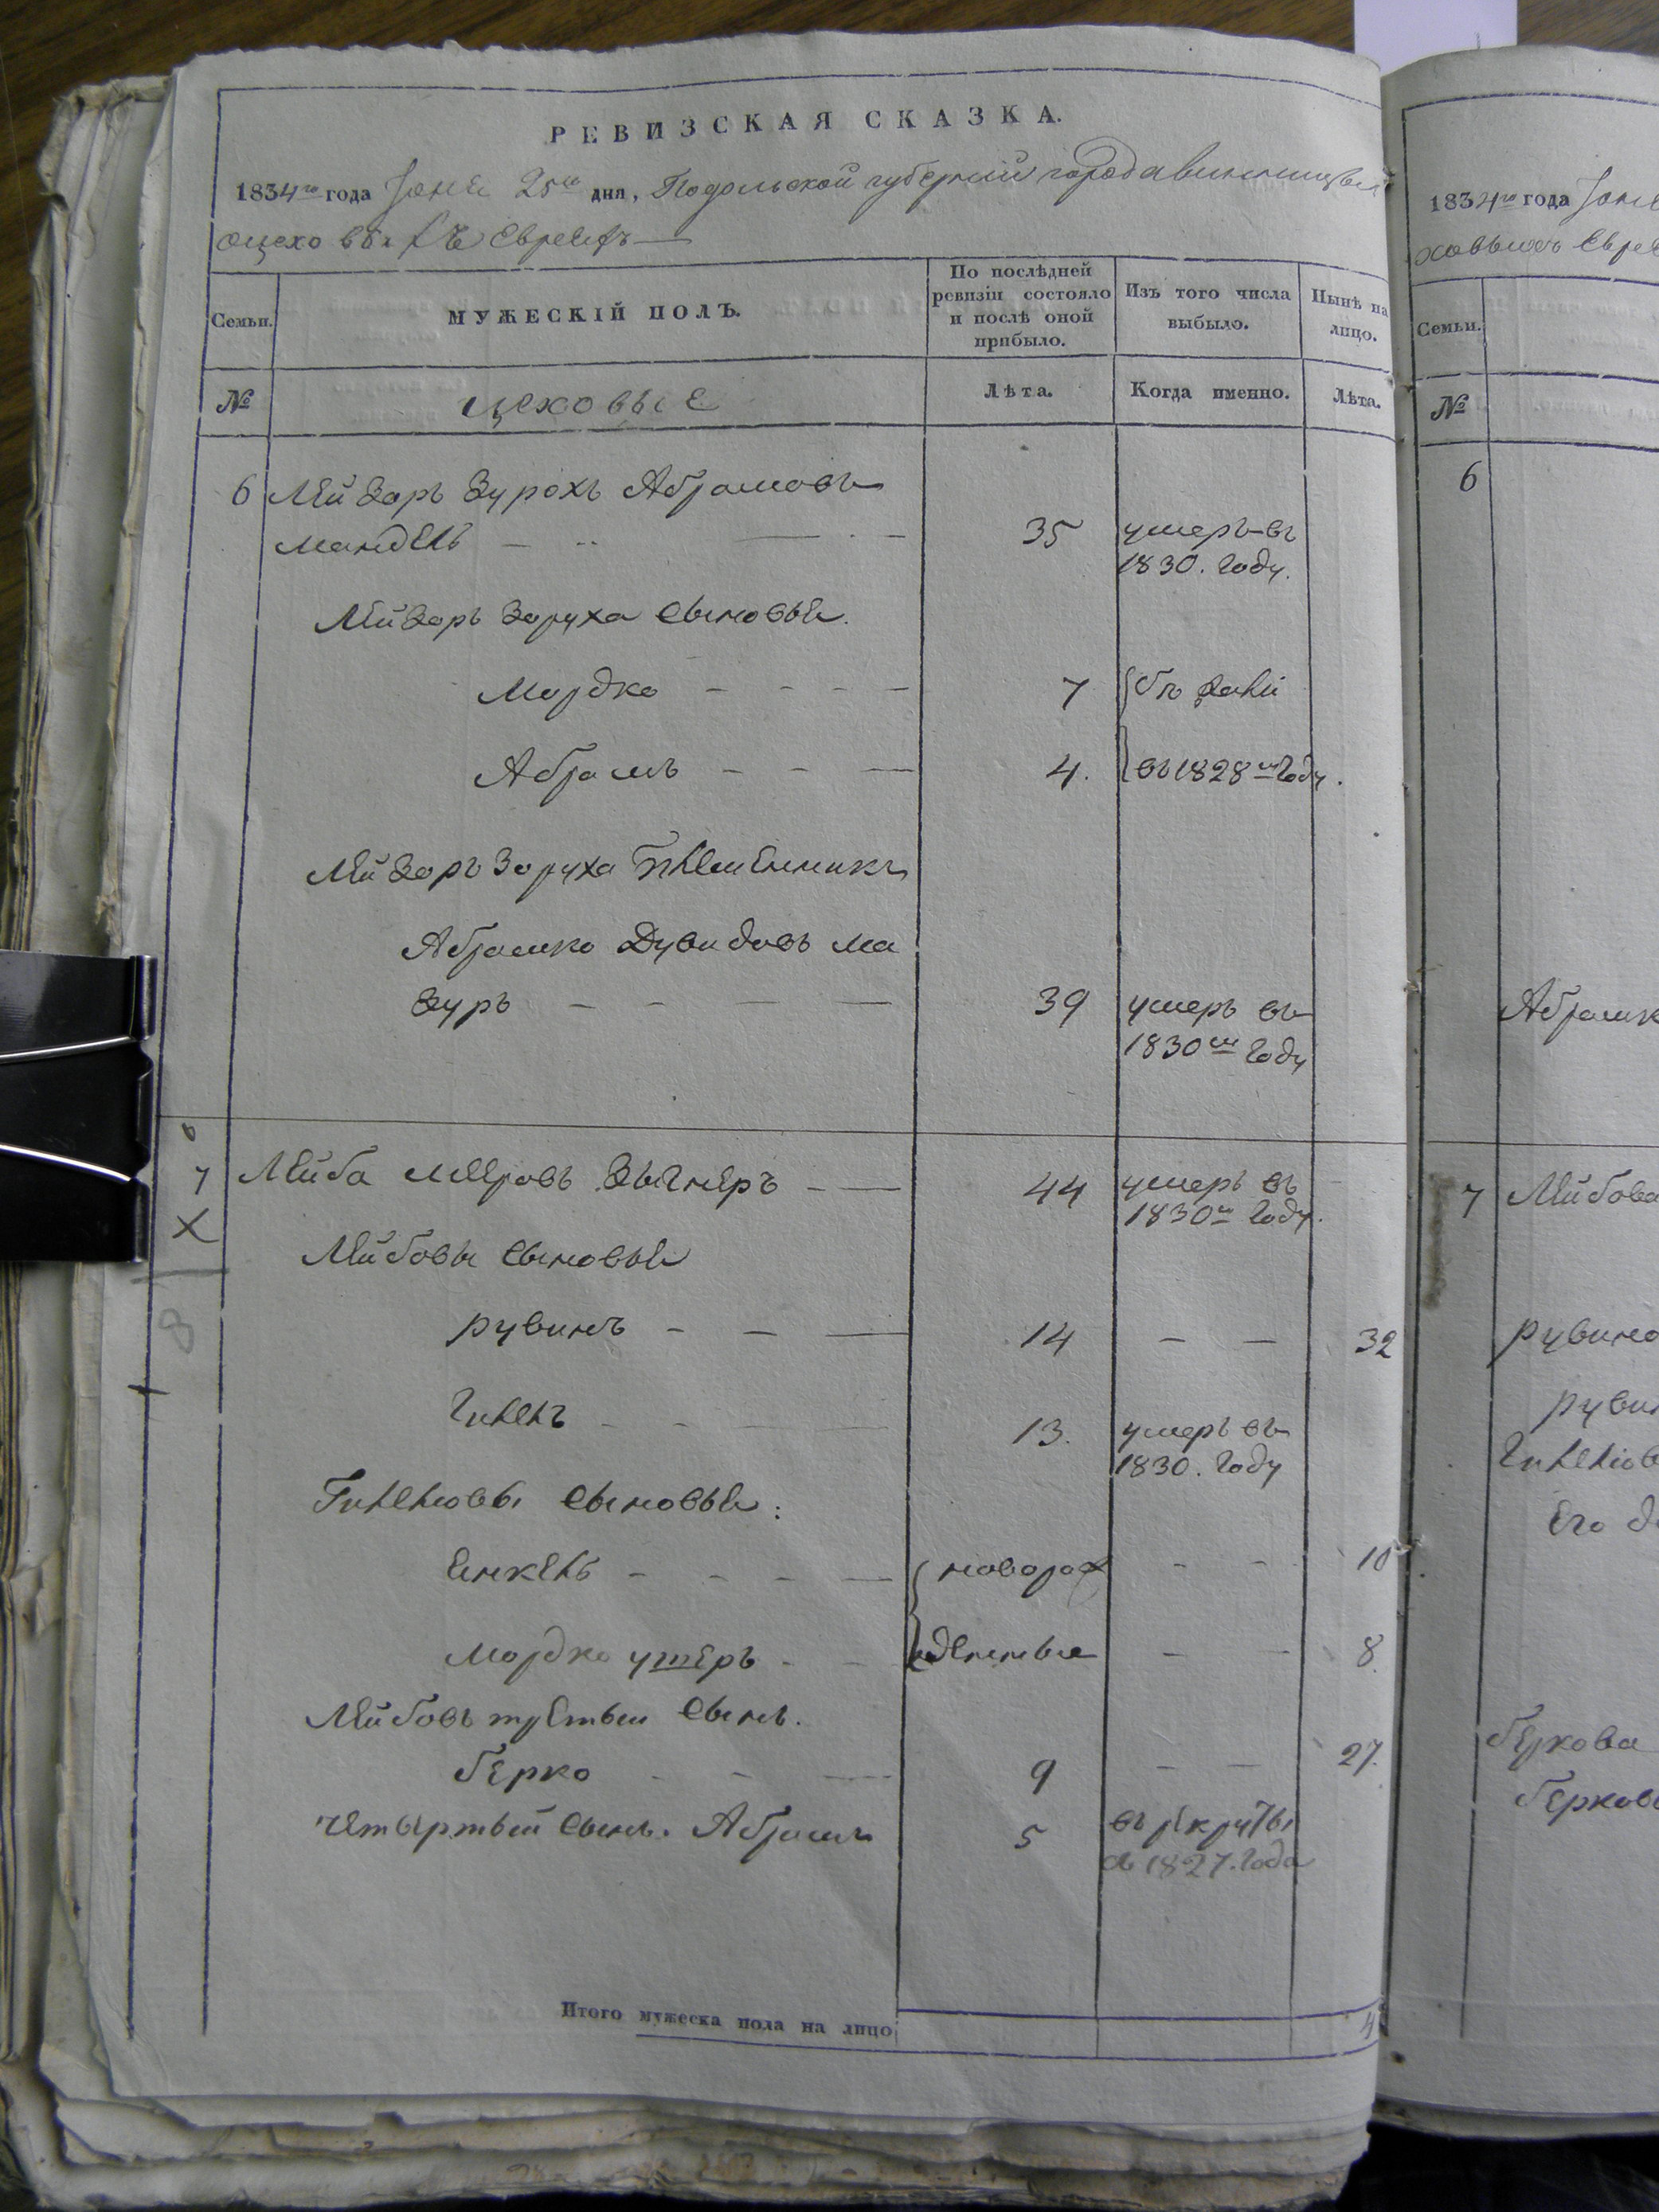 РЕВИЗСКАЯ СКАЗКА.
1834го года Іюня 25го дня, Подольской губерніи города винницы
о цеховыхъ Евреяхъ
Семьи.
МУЖЕСКІЙ ПОЛЪ.
По послѣдней ревизіи состояло и послѣ оной прибыло.
Изъ того числа выбыло.
Нынѣ на лицо.
№
цеховые
Лѣта.
Когда именно.
Лѣта.
6 Лейзоръ Зурохъ Абрамовъ
мандель 35 умеръ въ
1830. году.
Лейзоръ Зоруха сыновья.
Мордко 7 бѣжали
Абрамъ 4. въ 1828м году.
Лейзоръ Зоруха племенникъ
Абрамко Дувидовъ ма
зуръ 39 умеръ въ
1830м году
7 Лейба меѣровъ Вигнеръ 44 умеръ въ
1830м году.
Х
Лейбовы сыновья
рувинъ 14 32
Гилель 13. умеръ въ
1830. году
Гилелювы сыновья:
Енкель новорож 10
мордко ушеръ денные 8.
Лейбовъ третьи сынъ.
берко 9 27.
четыртый сынъ. Абрамъ 5 въ рѣкруты
съ 1827. года
8
Итого мужеска пола на лицо 4
1834го года
ховыхъ Евре
Семьи.
№
6
Абрамк
7 Лейбова
рувино
руви
Гилелюв
Его д
беркова
берков